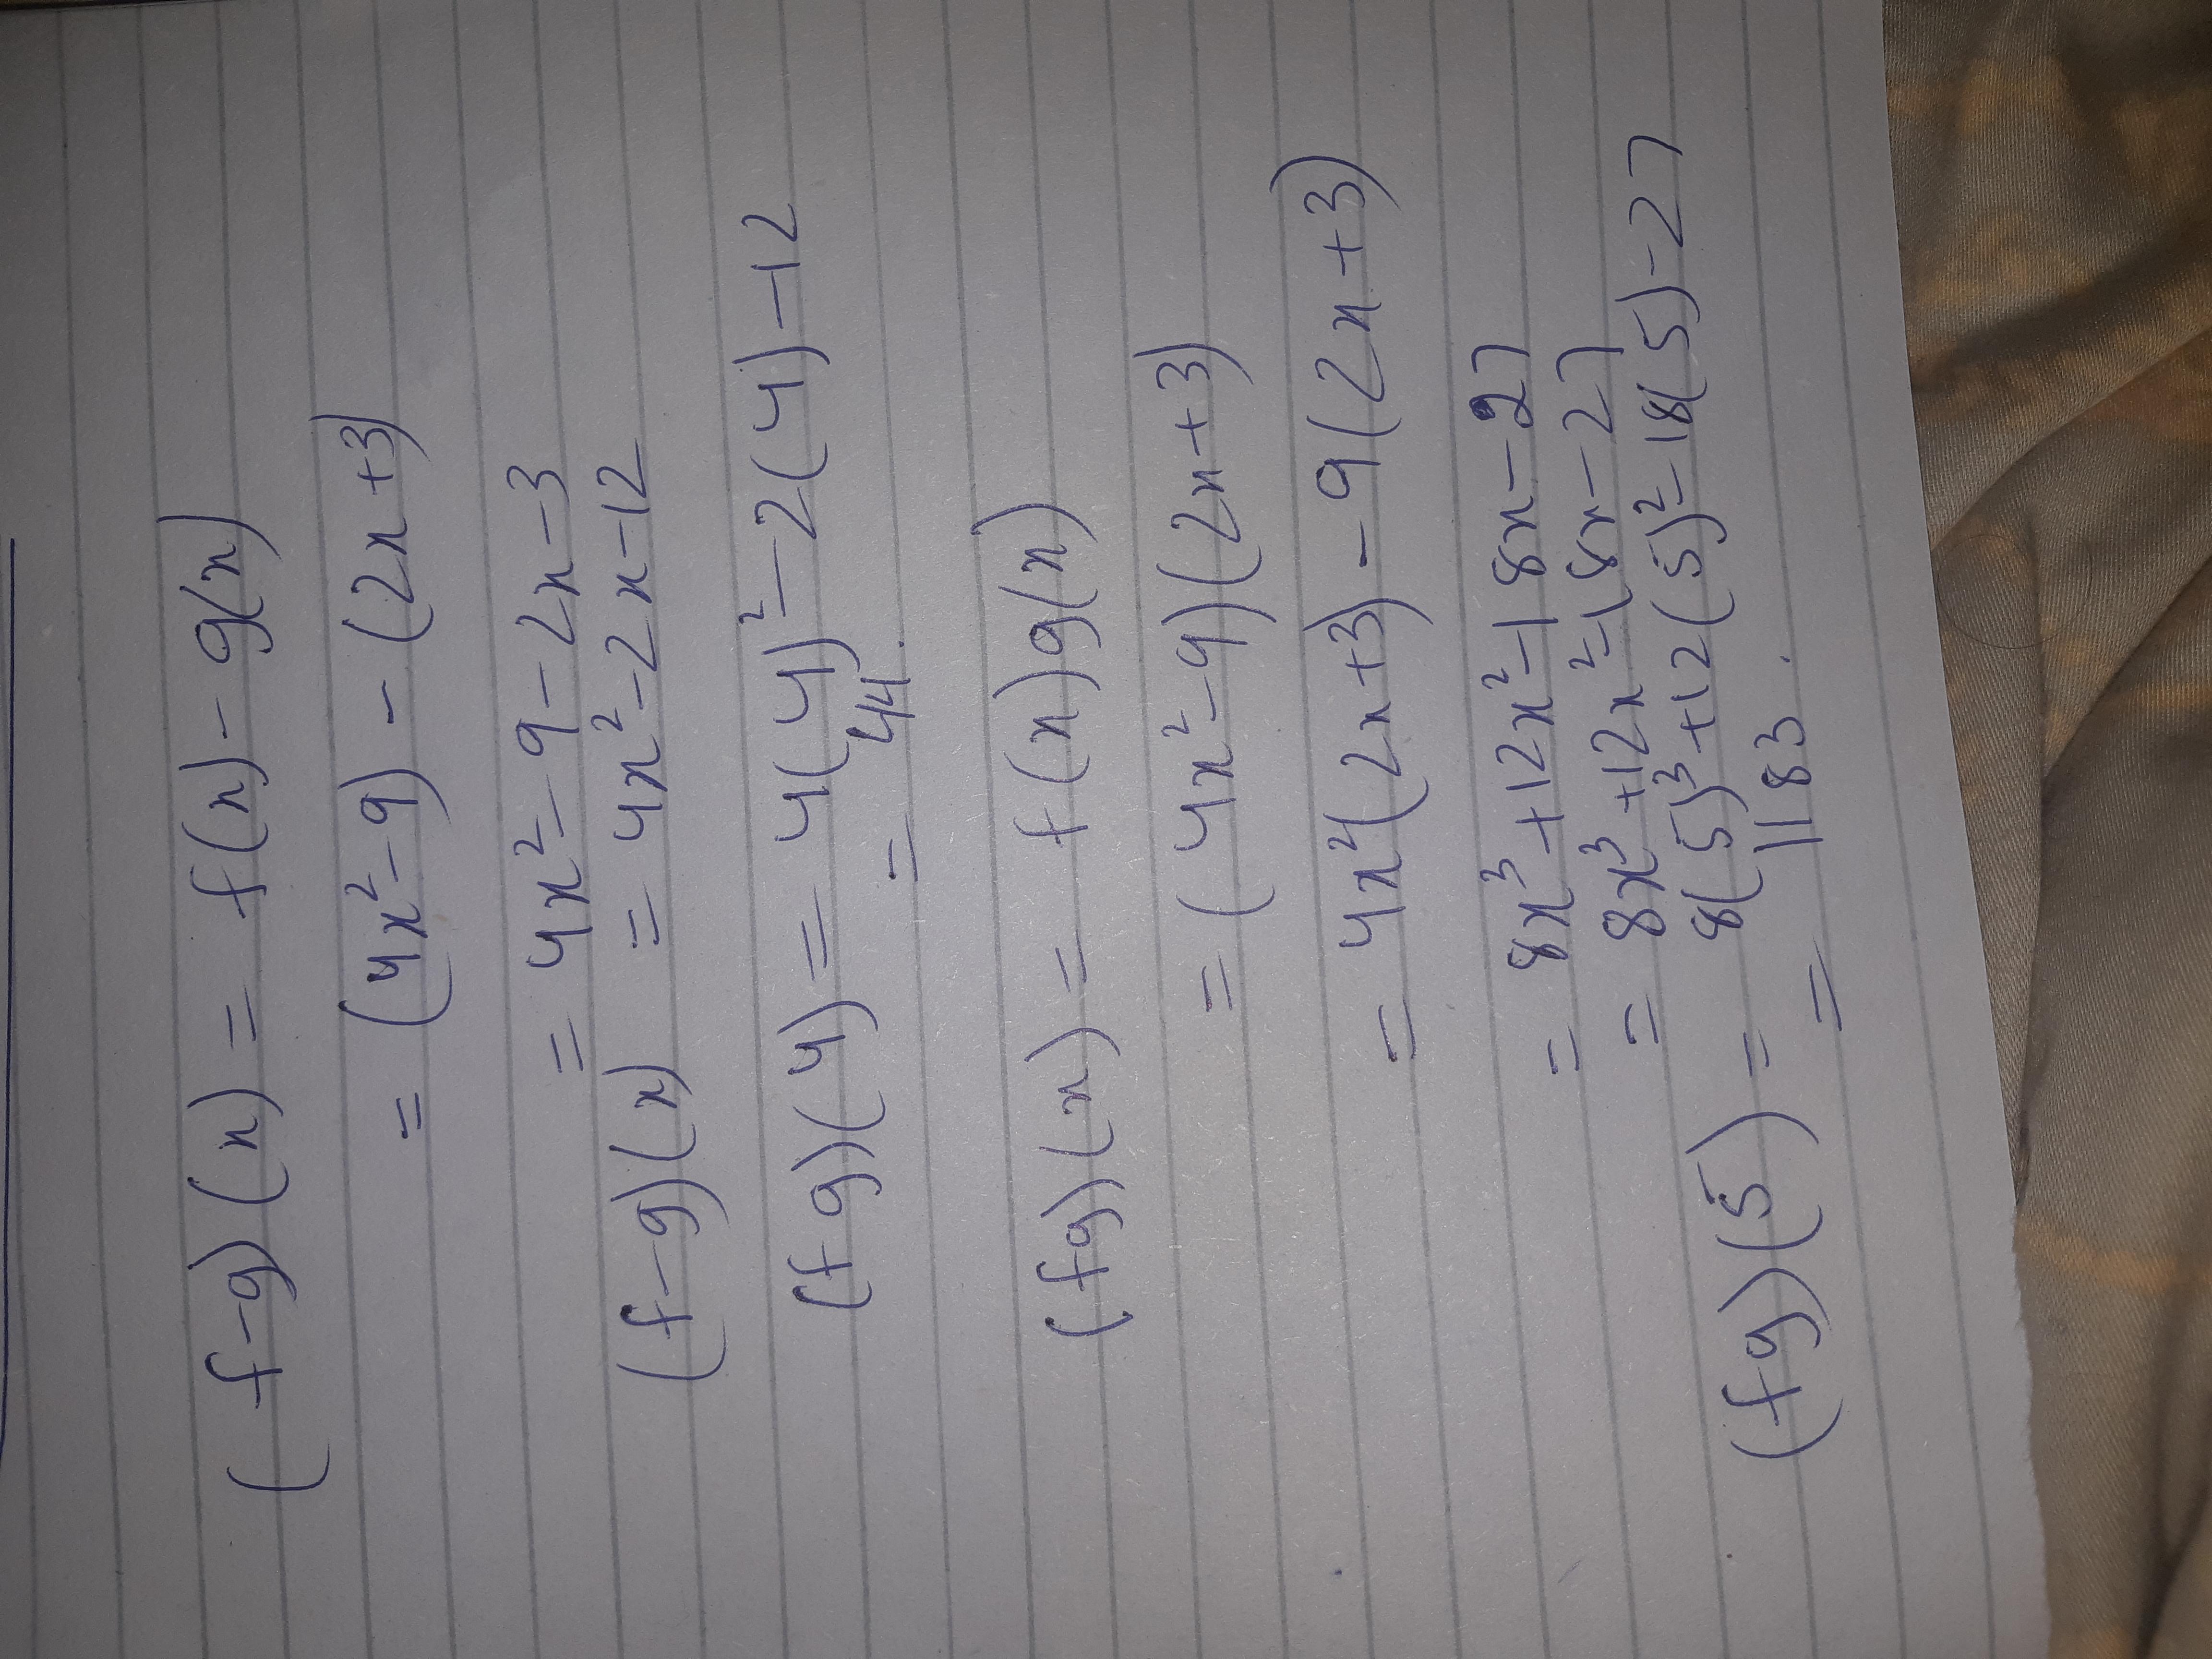 (f-g)(x) = f(x) - g(x)
= (4x²-9) - (2x+3)
= 4x²-9-2x-3
(f-g)(x) = 4x²-2x-12
(fg)(4) = 4(4)²-2(4)-12
= 44.
(fg)(x) = f(x)g(x)
= (4x²-9)(2x+3)
= 4x²(2x+3)-9(2x+3)
= 8x³+12x²-18x-27
= 8x³+12x²-18x-27
(fg)(5) = 8(5)³+12(5)²-18(5)-27
= 1183.